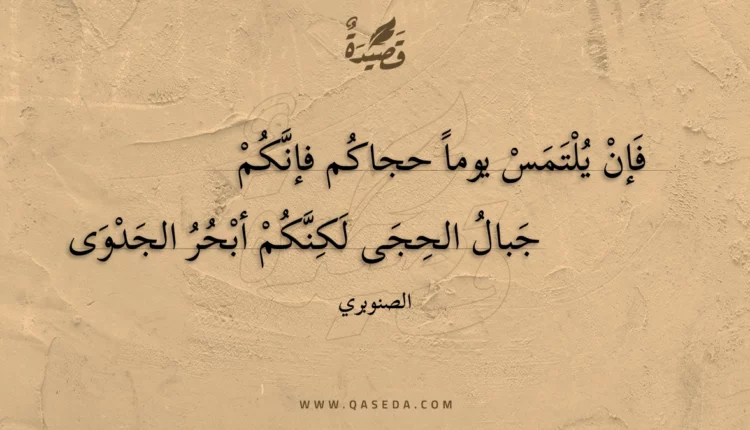 قَصِيدَةٌ
فَإنْ يُلْتَمَسْ يوماً حجاكُم فإنَّكُمْ
جَبالُ الحِجَى لَكِنَّكُمْ أبْحُرُ الجَدْوَى
الصنوبري
WWW.QASEDA.COM